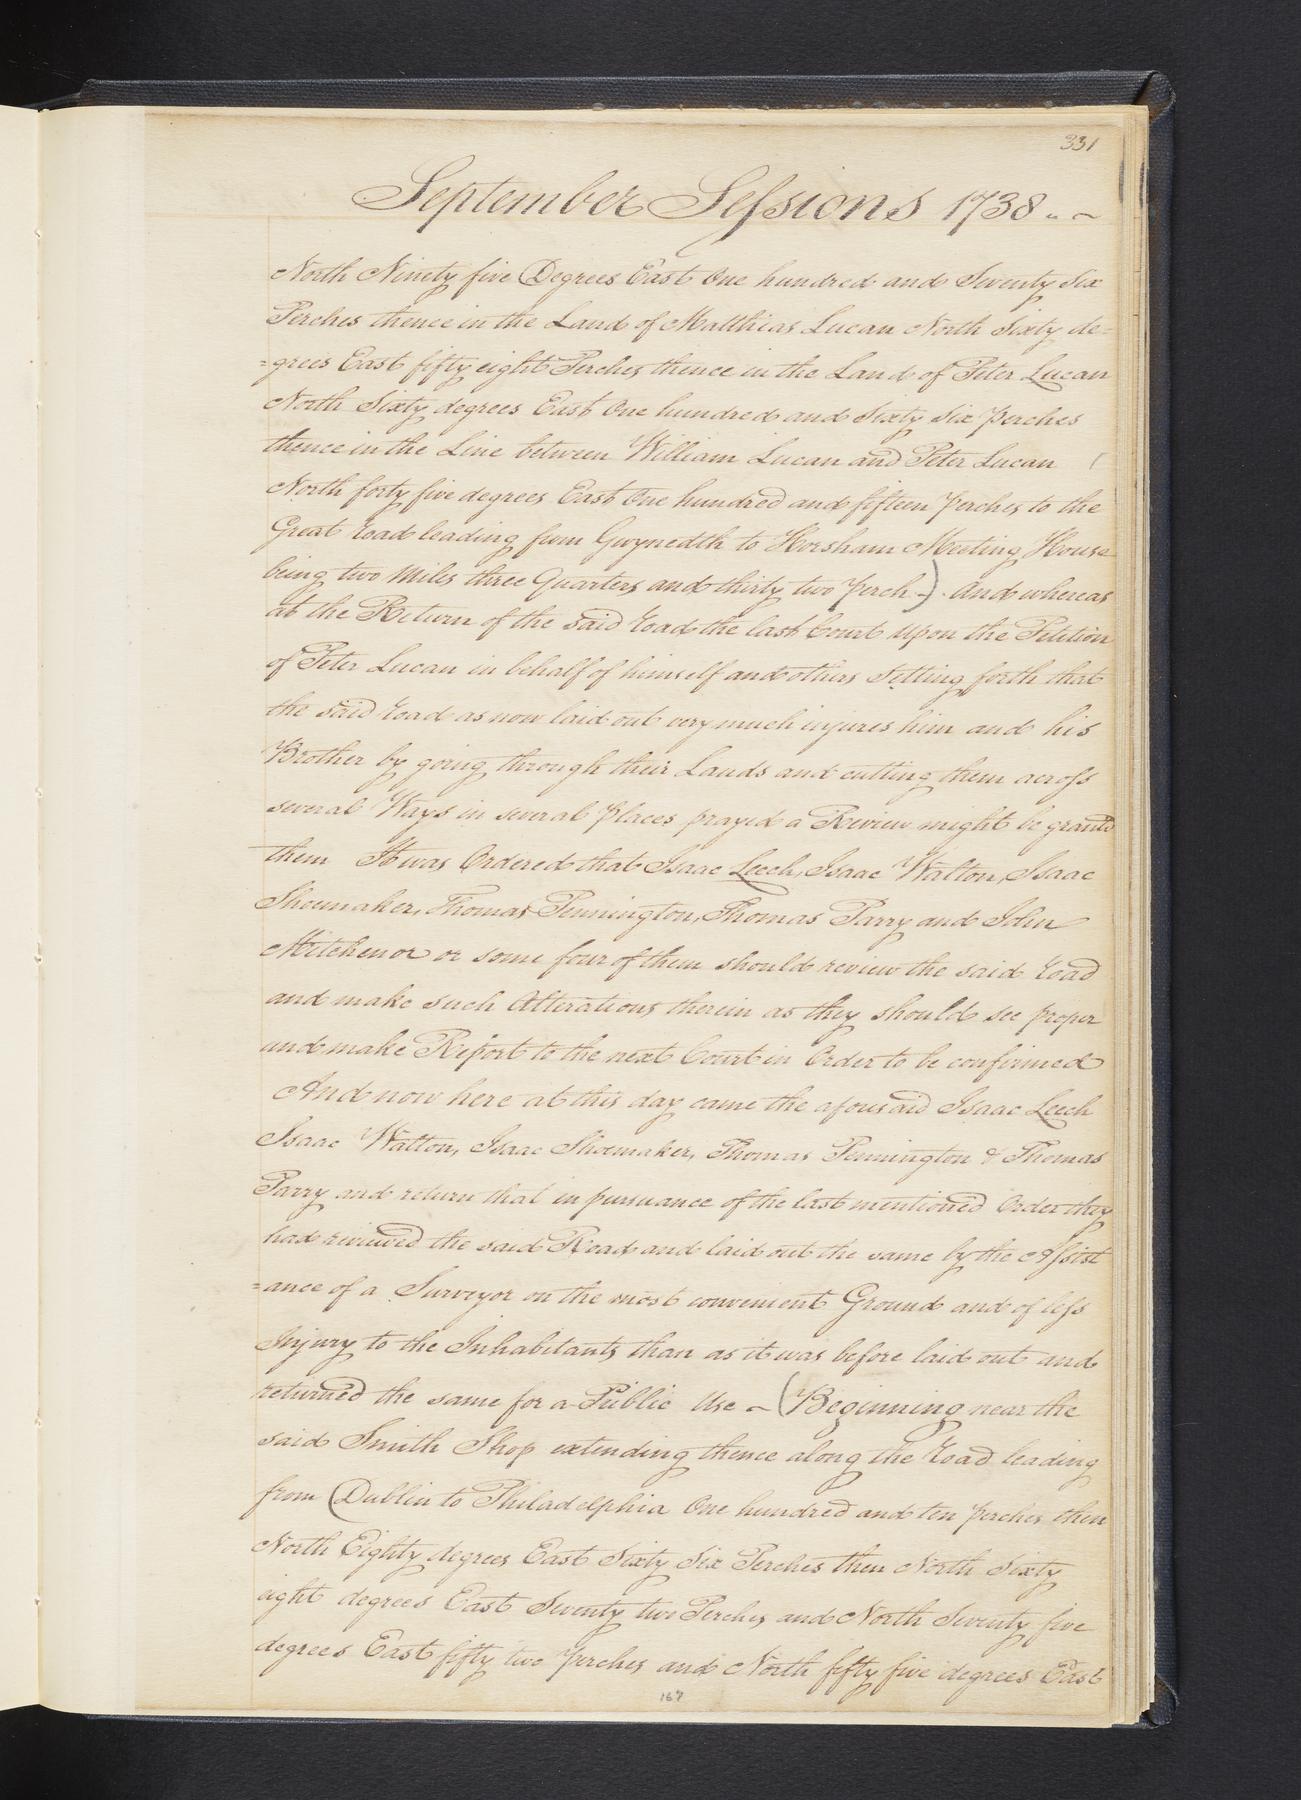 331
September Sessions 1738 .. ~
North Ninety five Degrees East One hundred and Seventy Six
Perches thence in the Land of Matthias Lucan North Sixty de=
=grees East fifty eight Perches thence in the Land of Peter Lucan
North Sixty degrees East One hundred and Sixty Six perches
thence in the Line between William Lucan and Peter Lucan
North forty five degrees East One hundred and fifteen perches to the
Great road leading from Gwynedth to Horsham Meeting House
being two Miles three Quarters and thirty two perch -). And whereas
at the Return of the said road the last Court upon the Petition
of Peter Lucan in behalf of himself and others Setting forth that
the said road as now laid out very much injures him and his
Brother by going through their Lands and cutting them across
several Ways in several places prayed a Review might be granted
them It was Ordered that Isaac Leech, Isaac Walton, Isaac
Shoemaker, Thomas Pennington, Thomas Parry and John
Mitchenor or some four of them should review the said road
and make such Alterations therein as they should see proper
and make Report to the next Court in Order to be confirmed
And now here at this day came the aforesaid Isaac Leech
Isaac Walton, Isaac Shoemaker, Thomas Pennington & Thomas
Parry and return that in pursuance of the last mentioned Order they
had reviewed the said Road and laid out the same by the Assist
=ance of a Surveyor on the most convenient Ground and of less
Injury to the Inhabitants than as it was before laid out and
returned the same for a Public Use ~ (Beginning near the
said Smith Shop extending thence along the road leading
from Dublin to Philadelphia One hundred and ten perches then
North Eighty degrees East Sixty Six Perches then North Sixty
eight degrees East Seventy two Perches and North Seventy five
degrees East fifty two perches and North fifty five degrees East
167